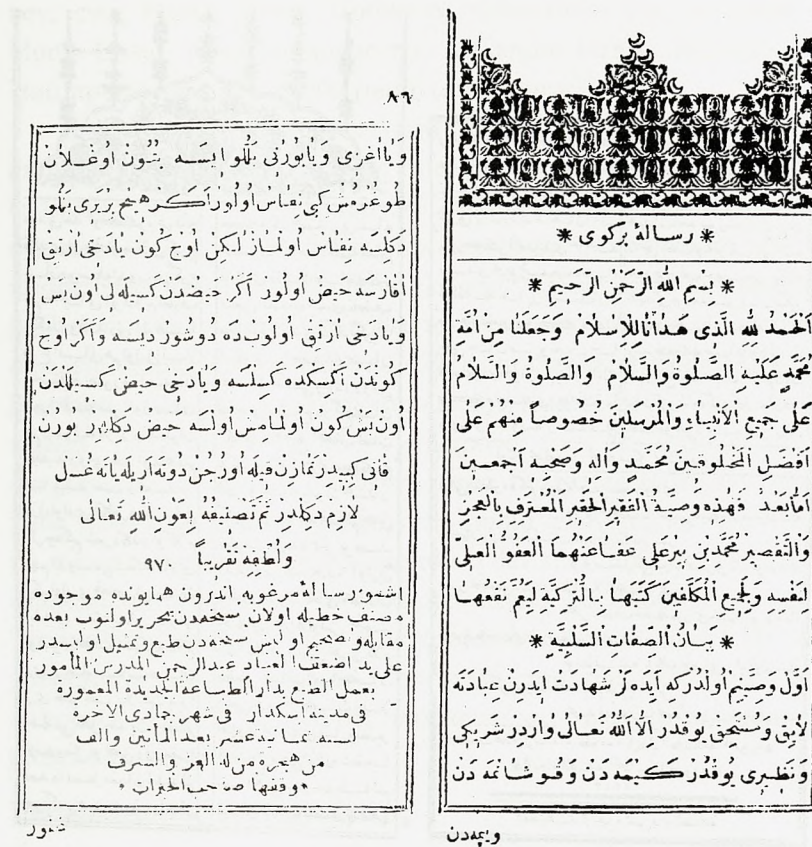 * رسالهٔ بركوى *
* بِسْمِ اللهِ الرَّحْمٰنِ الرَّحِيمِ *
اَلْحَمْدُ لِلّٰهِ الَّذِى هَدٰانَا لِلْاِسْلَامِ وَجَعَلَنَا مِنْ اُمَّةِ
مُحَمَّدٍ عَلَيْهِ الصَّلٰوةُ وَالسَّلَامُ وَالصَّلٰوةُ وَالسَّلَامُ
عَلٰى جَمِيعِ الْاَنْبِيَاءِ وَالْمُرْسَلِينَ خُصُوصاً مِنْهُمْ عَلٰى
اَفْضَلِ الْمَخْلُوقِينَ مُحَمَّدٍ وَاٰلِهِ وَصَحْبِهِ اَجْمَعِينَ
اَمَّا بَعْدُ فَهٰذِهِ وَصِيَّةُ الْفَقِيرِ الْحَقِيرِ الْمُعْتَرِفِ بِالْعَجْزِ
وَالتَّقْصِيرِ مُحَمَّدِ بْنِ پِيرْ عَلِى عَفَا عَنْهُمَا الْعَفُوُّ الْعَلِىُّ
لِنَفْسِهِ وَلِجَمِيعِ الْمُكَلَّفِينَ كَتَبَهَا بِالتُّرْكِيَّةِ لِيَعُمَّ نَفْعُهَا
* بَيَانُ الصِّفَاتِ السَّلْبِيَّةِ *
اَوَّلْ وَصِيَّتِمْ اُولْدُرْكِه اَيْدَه لَرْ شَهَادَتْ اِيدَرِنْ عِبَادَتَه
لَايِقْ وَمُسْتَحِقْ يُوقْدُرْ اِلَّا اَللّٰهُ تَعَالٰى وَارْدِرْ شَرِيكِى
وَنَظِيرِى يُوقْدُرْ كَيْمَه دَنْ وَقُوشَانْمَه دَنْ
وييمه‌دن
٨٦
وَيَا اَغْزِى وَيَا بُورْنِى بَلْلُو ايسَه بُتُونْ اُوغْلَانْ
طُوغُرْمُشْ كِبِى نِفَاسْ اُولُورْ اَكَرْ هِيچْ بِرْ يَرِى بَلْلُو
دَكِلْسَه نِفَاسْ اُولْمَازْ لٰكِنْ اُوچْ كُونْ يَادَخِى اَرْتِقْ
اَقَارْسَه حَيْضْ اُولُورْ اَكَرْ حَيْضْدَنْ كَسِيلَه لِى اُونْ بَشْ
وَيَادَخِى اَرْتِقْ اُولُوبْ دَه دُوشُورْدِيسَه وَاَكَرْ اُوچْ
كُونْدَنْ اَكْسِكْدَه كَسِلْسَه وَيَادَخِى حَيْضْ كَسِيلَلْدَنْ
اُونْ بَشْ كُونْ اُولْمَامِشْ اُولْسَه حَيْضْ دَكِلْدِرْ بُورُنْ
قَانِى كِبِيدِرْ نَمَازِنْ قِيلَه اُورُجُنْ دُوتَه اَرِيلَه يَاتَه غُسْلْ
لَازِمْ دَكِلْدِرْ تَمَّ تَصْنِيفُهُ بِعَوْنِ اللهِ تَعَالٰى
وَلُطْفِهِ تَقْرِيباً ٩٧٠
اشبو رسالهٔ مرغوبه اندرون همايونده موجوده
مصنف خطيله اولان نسخه‌دن تحرير اولنوب بعده
مقابله و تصحيح اولنمش نسخه‌دن طبع وتمثيل اولنمشدر
على يد اضعف العباد عبدالرحمن المدرس المأمور
بعمل الطبع بدار الطباعة الجديدة المعمورة
فى مدينة اسكدار فى شهر جمادى الآخرة
لسنة ثمانية عشر بعد المأتين والف
من هجرة من له العز والشرف
* وقفها صاحب الخيرات *